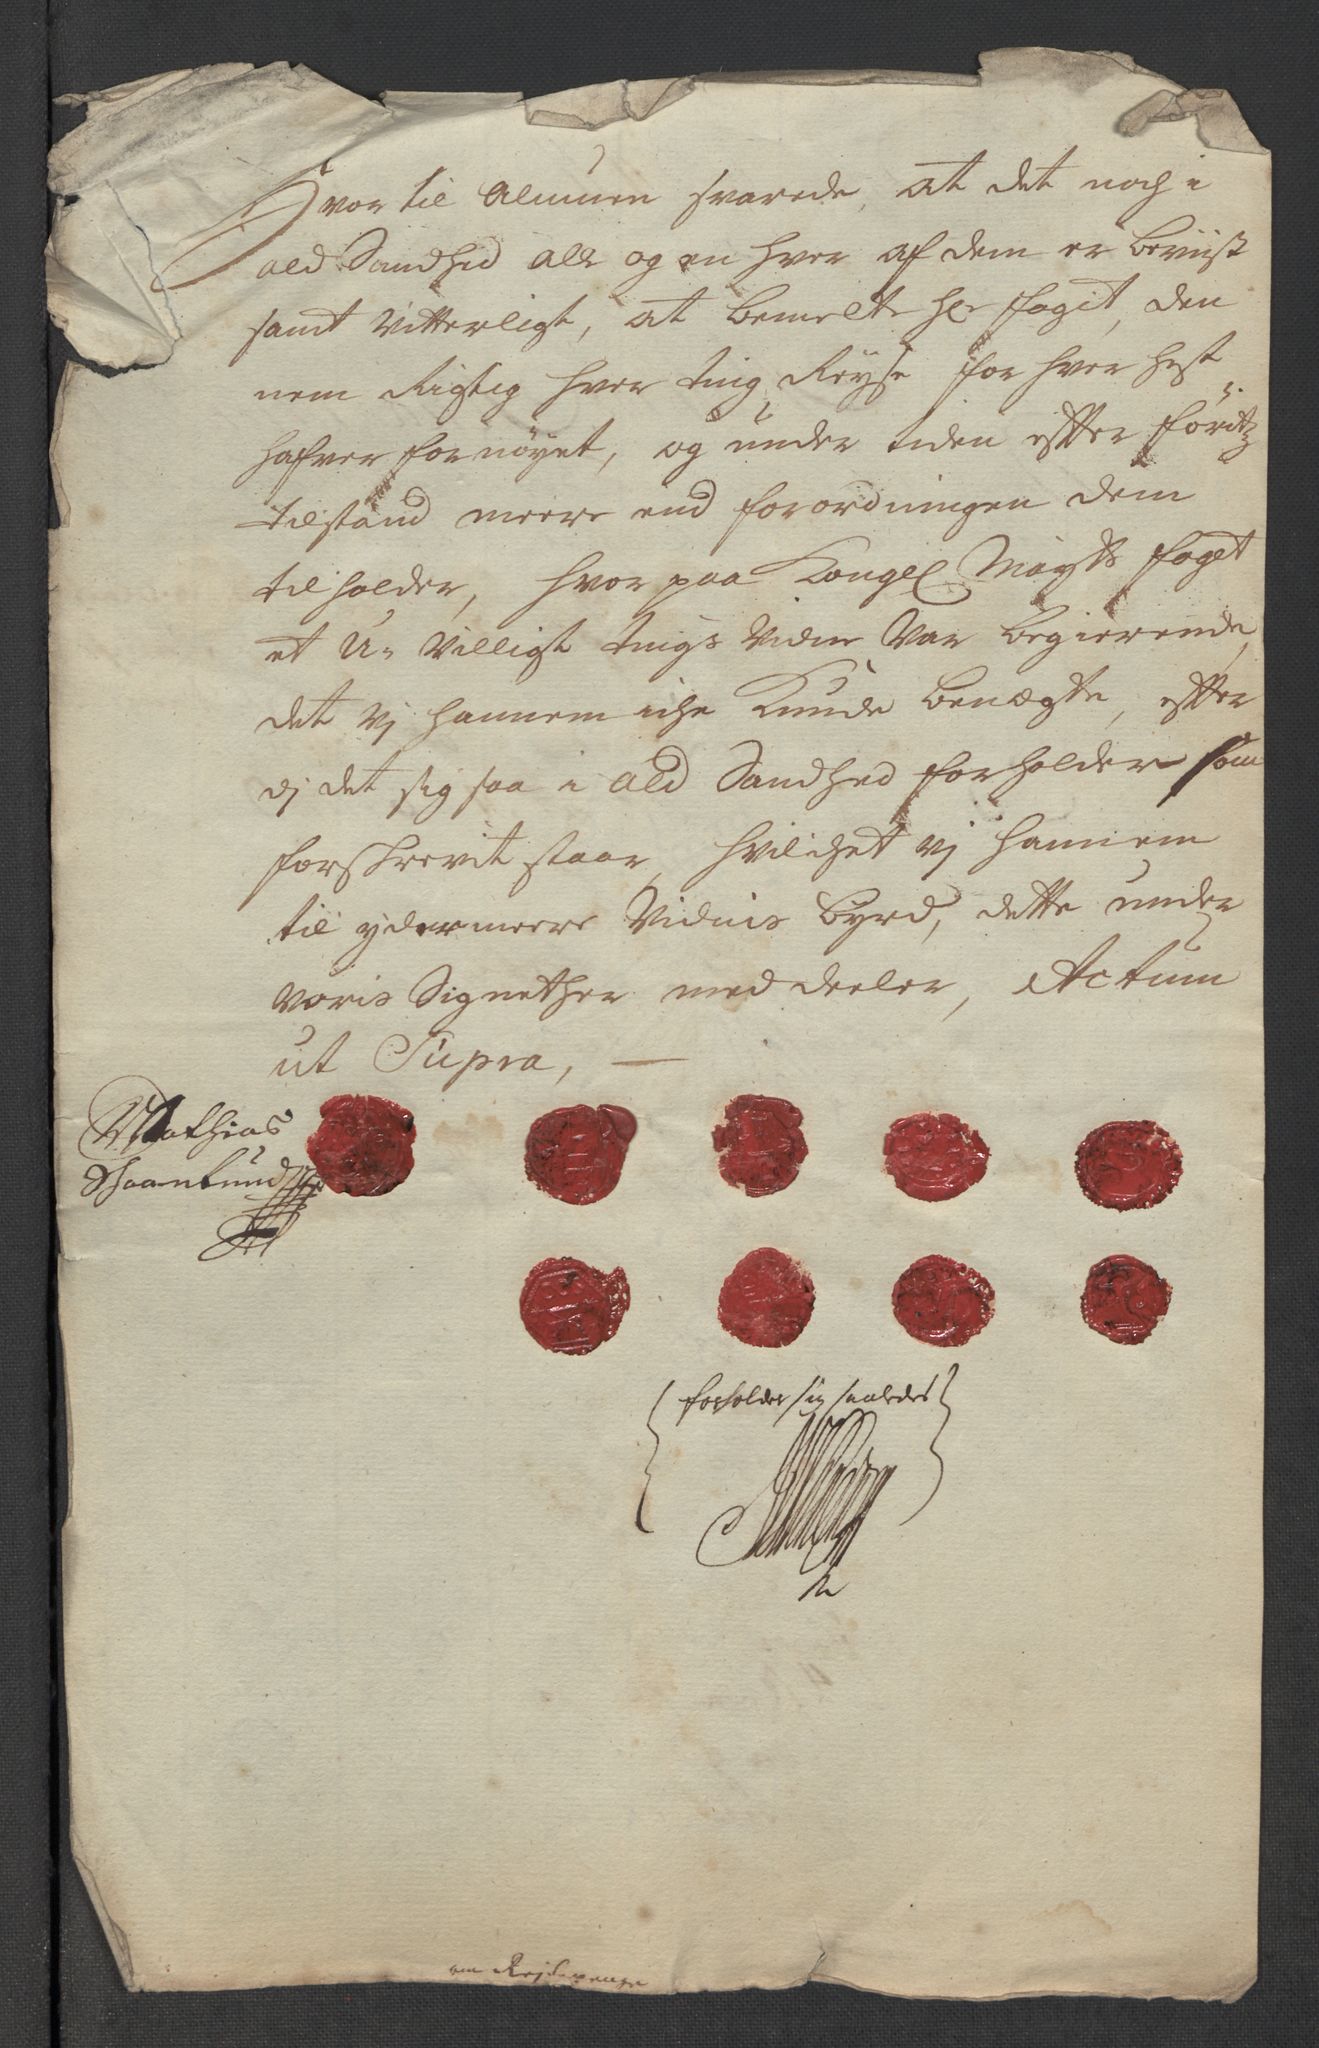 Hvor til Almuen svarede, at det noch i
ald Sandhed alle og en hver af dem er beviist
samt vitterligt, at bemelte Hr fogit, den
nem Rigtig hver ting Reyse for hver hest
hafver fornøyet, og under tiden effter föritz
tilstand meere end forordningen dem
tilholder, hvor paa Kongel Mayts foget
et U-villigt tings vidne var begierende,
det vj hannem iche kunde benægte, effter
dj det sig saa i ald Sandhed forholder som
forskrevit staar, hvilchet vj hannem
til ydermeere vidnis byrd, dette under
voris Signether meddeeler, Actum
ut Supra, —
Mathias
forholder sig saaledes
om Rejsepenge